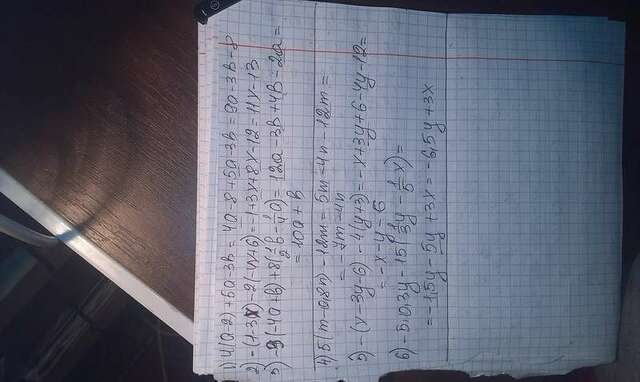 1) 4(a-2)+5a-3b=4a-8+5a-3b=9a-3b-8
2) -(1-3x)-2(-4x+6)=-1+3x+8x-12=11x-13
3) -3(-4a+b)+8(1/2b-1/4a)=12a-3b+4b-2a=
=10a+b
4) 5(m-0,8n)-12m=5m-4n-12m=
=-7m-4n
5) -(x-3y-6)-4(y+3)=-x+3y+6-4y-12=
=-x-y-6
6) -5·0,3y-15(1/3y-1/5x)=
=-1,5y-5y+3x=-6,5y+3x